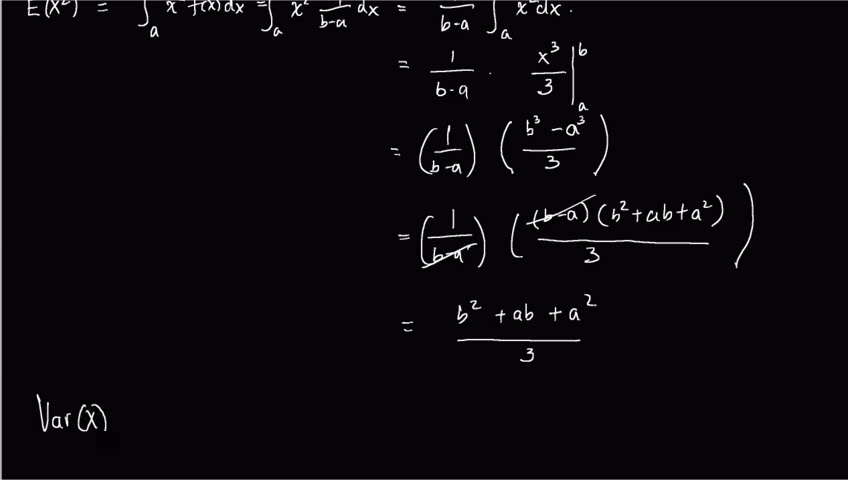 E(X²) = ∫ₐ x² f(x) dx = ∫ₐ x² 1/(b-a) dx = 1/(b-a) ∫ₐ x² dx.
= 1/(b-a) · x³/3 |ₐᵇ
= (1/(b-a)) ((b³ - a³)/3)
= (1/(b-a)) ((b-a)(b² + ab + a²)/3)
= (b² + ab + a²)/3
Var(X)